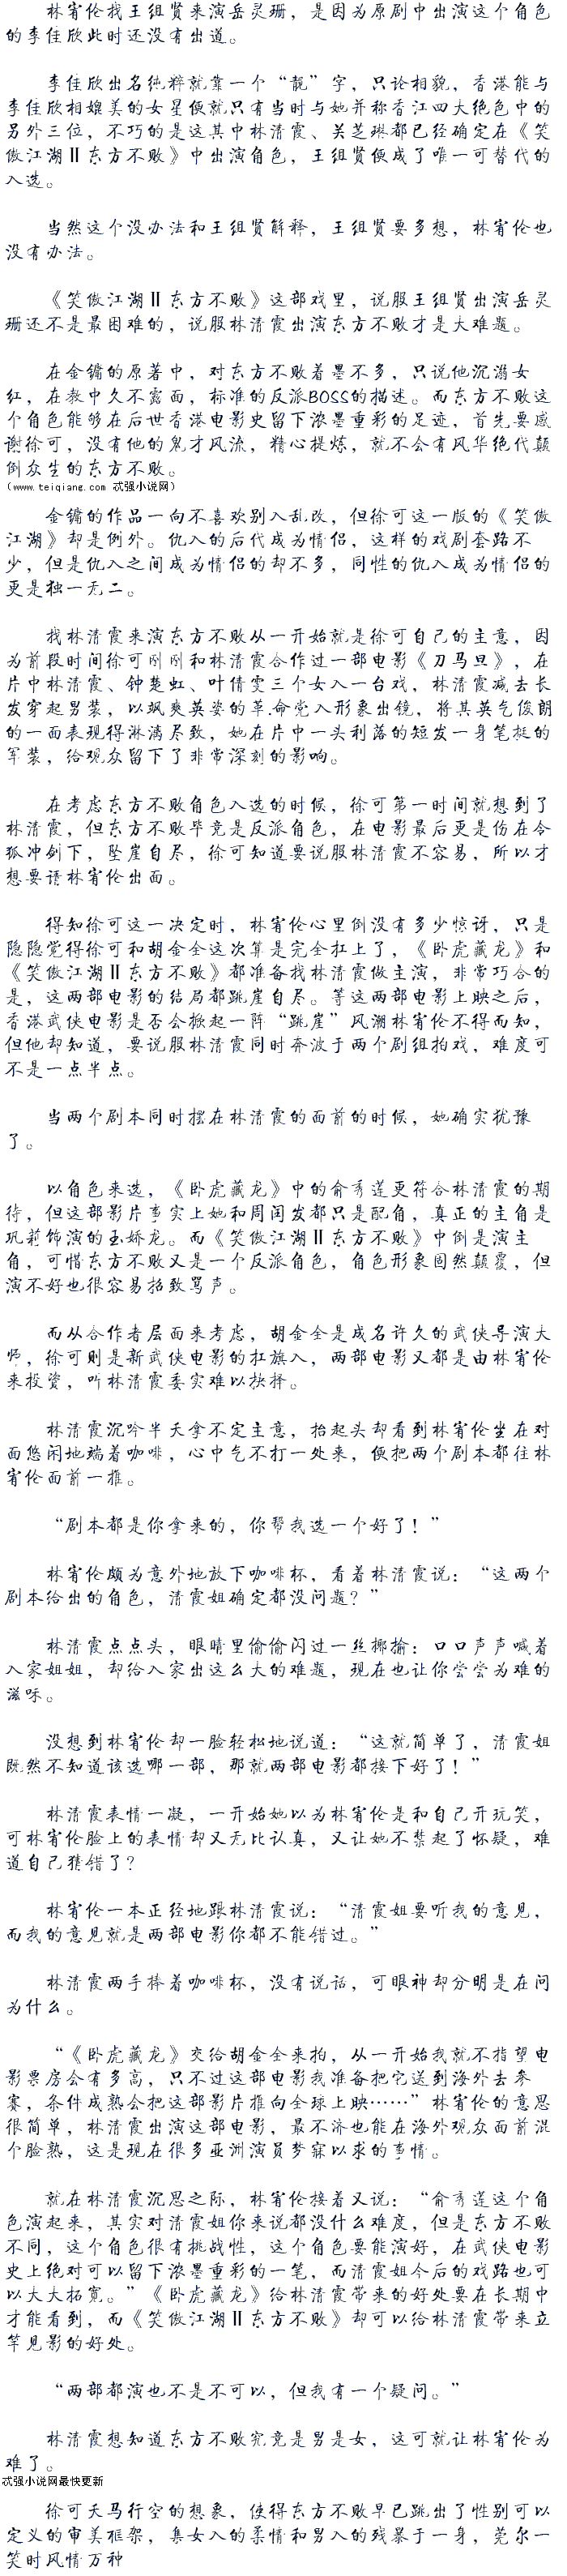 林宥伦找王组贤来演岳灵珊，是因为原剧中出演这个角色
的李佳欣此时还没有出道。
李佳欣出名纯粹就靠一个“靓”字，只论相貌，香港能与
李佳欣相媲美的女星便就只有当时与她并称香江四大绝色中的
另外三位，不巧的是这其中林清霞、关芝琳都已经确定在《笑
傲江湖Ⅱ东方不败》中出演角色，王组贤便成了唯一可替代的
人选。
当然这个没办法和王组贤解释，王组贤要多想，林宥伦也
没有办法。
《笑傲江湖Ⅱ东方不败》这部戏里，说服王组贤出演岳灵
珊还不是最困难的，说服林清霞出演东方不败才是大难题。
在金镛的原著中，对东方不败着墨不多，只说他沉溺女
红，在教中久不露面，标准的反派BOSS的描述。而东方不败这
个角色能够在后世香港电影史留下浓墨重彩的足迹，首先要感
谢徐可，没有他的鬼才风流，精心提炼，就不会有风华绝代颠
倒众生的东方不败。
（www.teiqiang.com 忒强小说网）
金镛的作品一向不喜欢别人乱改，但徐可这一版的《笑傲
江湖》却是例外。仇人的后代成为情侣，这样的戏剧套路不
少，但是仇人之间成为情侣的却不多，同性的仇人成为情侣的
更是独一无二。
找林清霞来演东方不败从一开始就是徐可自己的主意，因
为前段时间徐可刚刚和林清霞合作过一部电影《刀马旦》，在
片中林清霞、钟楚虹、叶倩雯三个女人一台戏，林清霞减去长
发穿起男装，以飒爽英姿的革.命党人形象出镜，将其英气俊朗
的一面表现得淋漓尽致，她在片中一头利落的短发一身笔挺的
军装，给观众留下了非常深刻的影响。
在考虑东方不败角色人选的时候，徐可第一时间就想到了
林清霞，但东方不败毕竟是反派角色，在电影最后更是伤在令
狐冲剑下，坠崖自尽，徐可知道要说服林清霞不容易，所以才
想要请林宥伦出面。
得知徐可这一决定时，林宥伦心里倒没有多少惊讶，只是
隐隐觉得徐可和胡金全这次算是完全扛上了，《卧虎藏龙》和
《笑傲江湖Ⅱ东方不败》都准备找林清霞做主演，非常巧合的
是，这两部电影的结局都跳崖自尽。等这两部电影上映之后，
香港武侠电影是否会掀起一阵“跳崖”风潮林宥伦不得而知，
但他却知道，要说服林清霞同时奔波于两个剧组拍戏，难度可
不是一点半点。
当两个剧本同时摆在林清霞的面前的时候，她确实犹豫
了。
以角色来选，《卧虎藏龙》中的俞秀莲更符合林清霞的期
待，但这部影片事实上她和周闰发都只是配角，真正的主角是
巩莉饰演的玉娇龙。而《笑傲江湖Ⅱ东方不败》中倒是演主
角，可惜东方不败又是一个反派角色，角色形象固然颠覆，但
演不好也很容易招致骂声。
而从合作者层面来考虑，胡金全是成名许久的武侠导演大
师，徐可则是新武侠电影的扛旗人，两部电影又都是由林宥伦
来投资，听林清霞委实难以抉择。
林清霞沉吟半天拿不定主意，抬起头却看到林宥伦坐在对
面悠闲地端着咖啡，心中气不打一处来，便把两个剧本都往林
宥伦面前一推。
“剧本都是你拿来的，你帮我选一个好了！”
林宥伦颇为意外地放下咖啡杯，看着林清霞说：“这两个
剧本给出的角色，清霞姐确定都没问题？”
林清霞点点头，眼睛里偷偷闪过一丝揶揄：口口声声喊着
人家姐姐，却给人家出这么大的难题，现在也让你尝尝为难的
滋味。
没想到林宥伦却一脸轻松地说道：“这就简单了，清霞姐
既然不知道该选哪一部，那就两部电影都接下好了！”
林清霞表情一凝，一开始她以为林宥伦是和自己开玩笑，
可林宥伦脸上的表情却又无比认真，又让她不禁起了怀疑，难
道自己猜错了？
林宥伦一本正经地跟林清霞说：“清霞姐要听我的意见，
而我的意见就是两部电影你都不能错过。”
林清霞两手捧着咖啡杯，没有说话，可眼神却分明是在问
为什么。
“《卧虎藏龙》交给胡金全来拍，从一开始我就不指望电
影票房会有多高，只不过这部电影我准备把它送到海外去参
赛，条件成熟会把这部影片推向全球上映……”林宥伦的意思
很简单，林清霞出演这部电影，最不济也能在海外观众面前混
个脸熟，这是现在很多亚洲演员梦寐以求的事情。
就在林清霞沉思之际，林宥伦接着又说：“俞秀莲这个角
色演起来，其实对清霞姐你来说都没什么难度，但是东方不败
不同，这个角色很有挑战性，这个角色要能演好，在武侠电影
史上绝对可以留下浓墨重彩的一笔，而清霞姐今后的戏路也可
以大大拓宽。”《卧虎藏龙》给林清霞带来的好处要在长期中
才能看到，而《笑傲江湖Ⅱ东方不败》却可以给林清霞带来立
竿见影的好处。
“两部都演也不是不可以，但我有一个疑问。”
林清霞想知道东方不败究竟是男是女，这可就让林宥伦为
难了。
忒强小说网最快更新
徐可天马行空的想象，使得东方不败早已跳出了性别可以
定义的审美框架，集女人的柔情和男人的残暴于一身，莞尔一
笑时风情万种